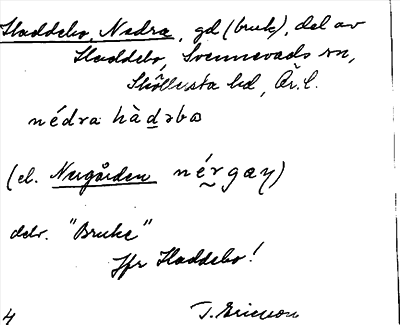 Haddebo, Nedra, gd (bruk), del av
Haddebo, Svennevads sn,
Sköllersta hd, Ör. l.
nédra hàdəbω
(el. Nergården nérgaɳ)
delv. "Bruket"
Jfr Haddebo!
4 T. Ericsson